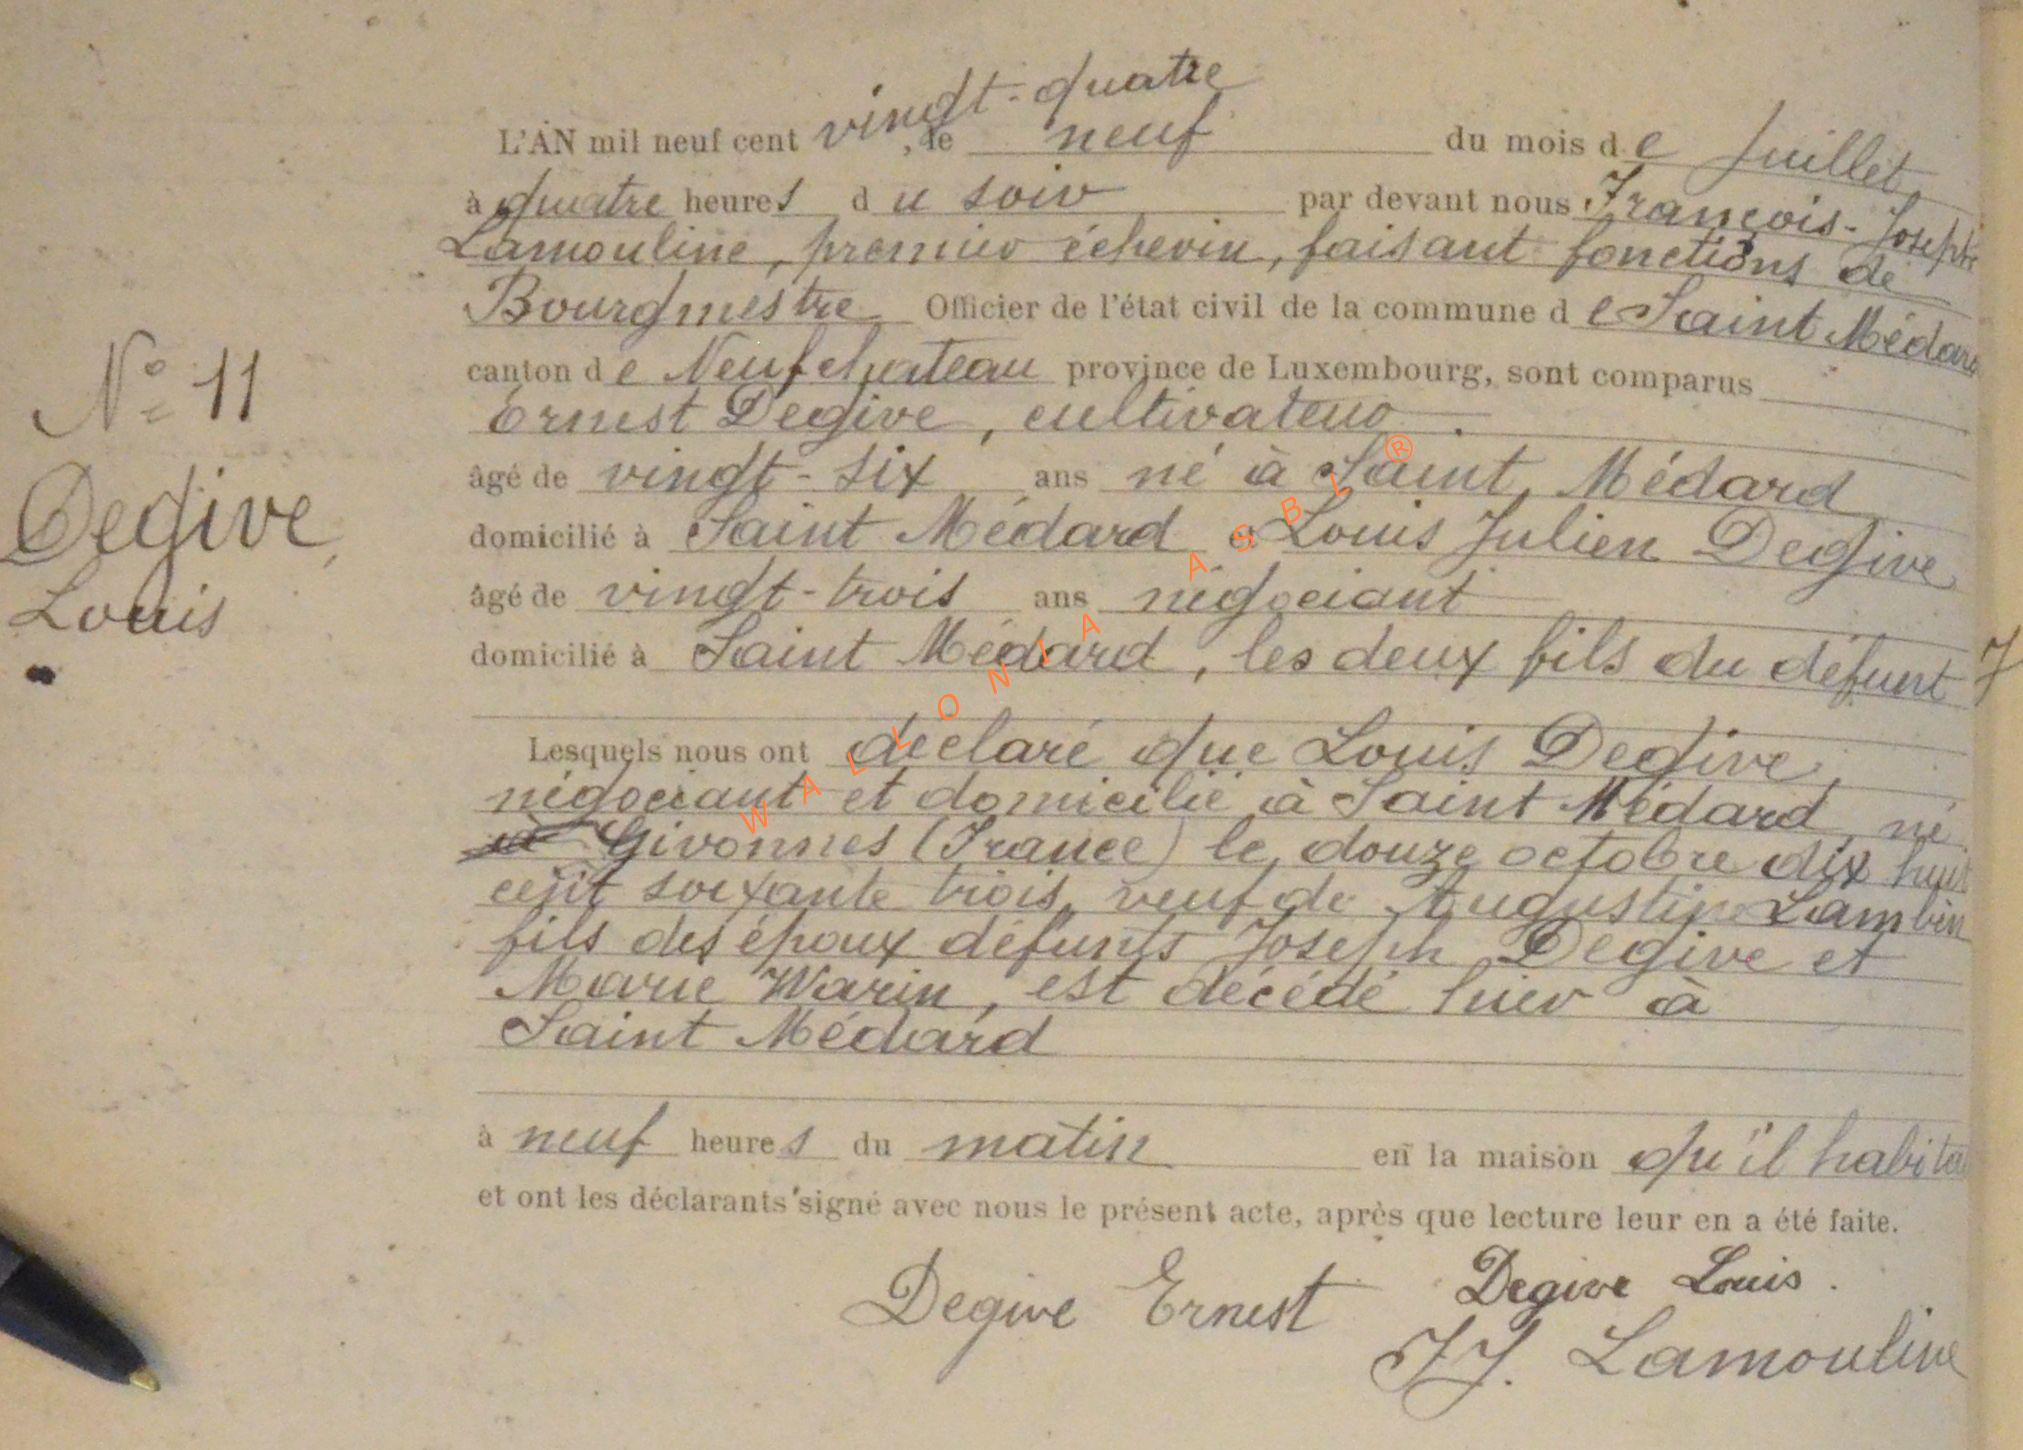 vingt-quatre
L'AN mil neuf cent , le neuf du mois de Juillet,
à quatre heures du soir par devant nous François-Joseph
Lamouline, premier échevin, faisant fonctions de
Bourgmestre Officier de l'état civil de la commune de Saint Médard
canton de Neufchateau province de Luxembourg, sont comparus
Ernest Degive, cultivateur.
âgé de vingt-six ans né à Saint Médard
domicilié à Saint Médard et Louis Julien Degive
âgé de vingt-trois ans négociant
domicilié à Saint Médard, les deux fils du défunt
Lesquels nous ont déclaré que Louis Degive,
négociant et domicilié à Saint Médard, né
à Givonnes (France) le douze octobre dix huit
cent soixante trois, veuf de Augustine Lambin
fils des époux défunts Joseph Degive et
Marie Warin, est décédé hier à
Saint Médard
à neuf heures du matin en la maison qu'il habita
et ont les déclarants signé avec nous le présent acte, après que lecture leur en a été faite.
Degive Ernest Degive Louis.
J J. Lamouline
N° 11
Degive,
Louis
WALLONIA ASBL ®